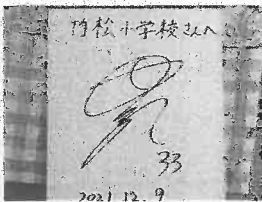 竹松小学校さんへ
33
2021.12.9